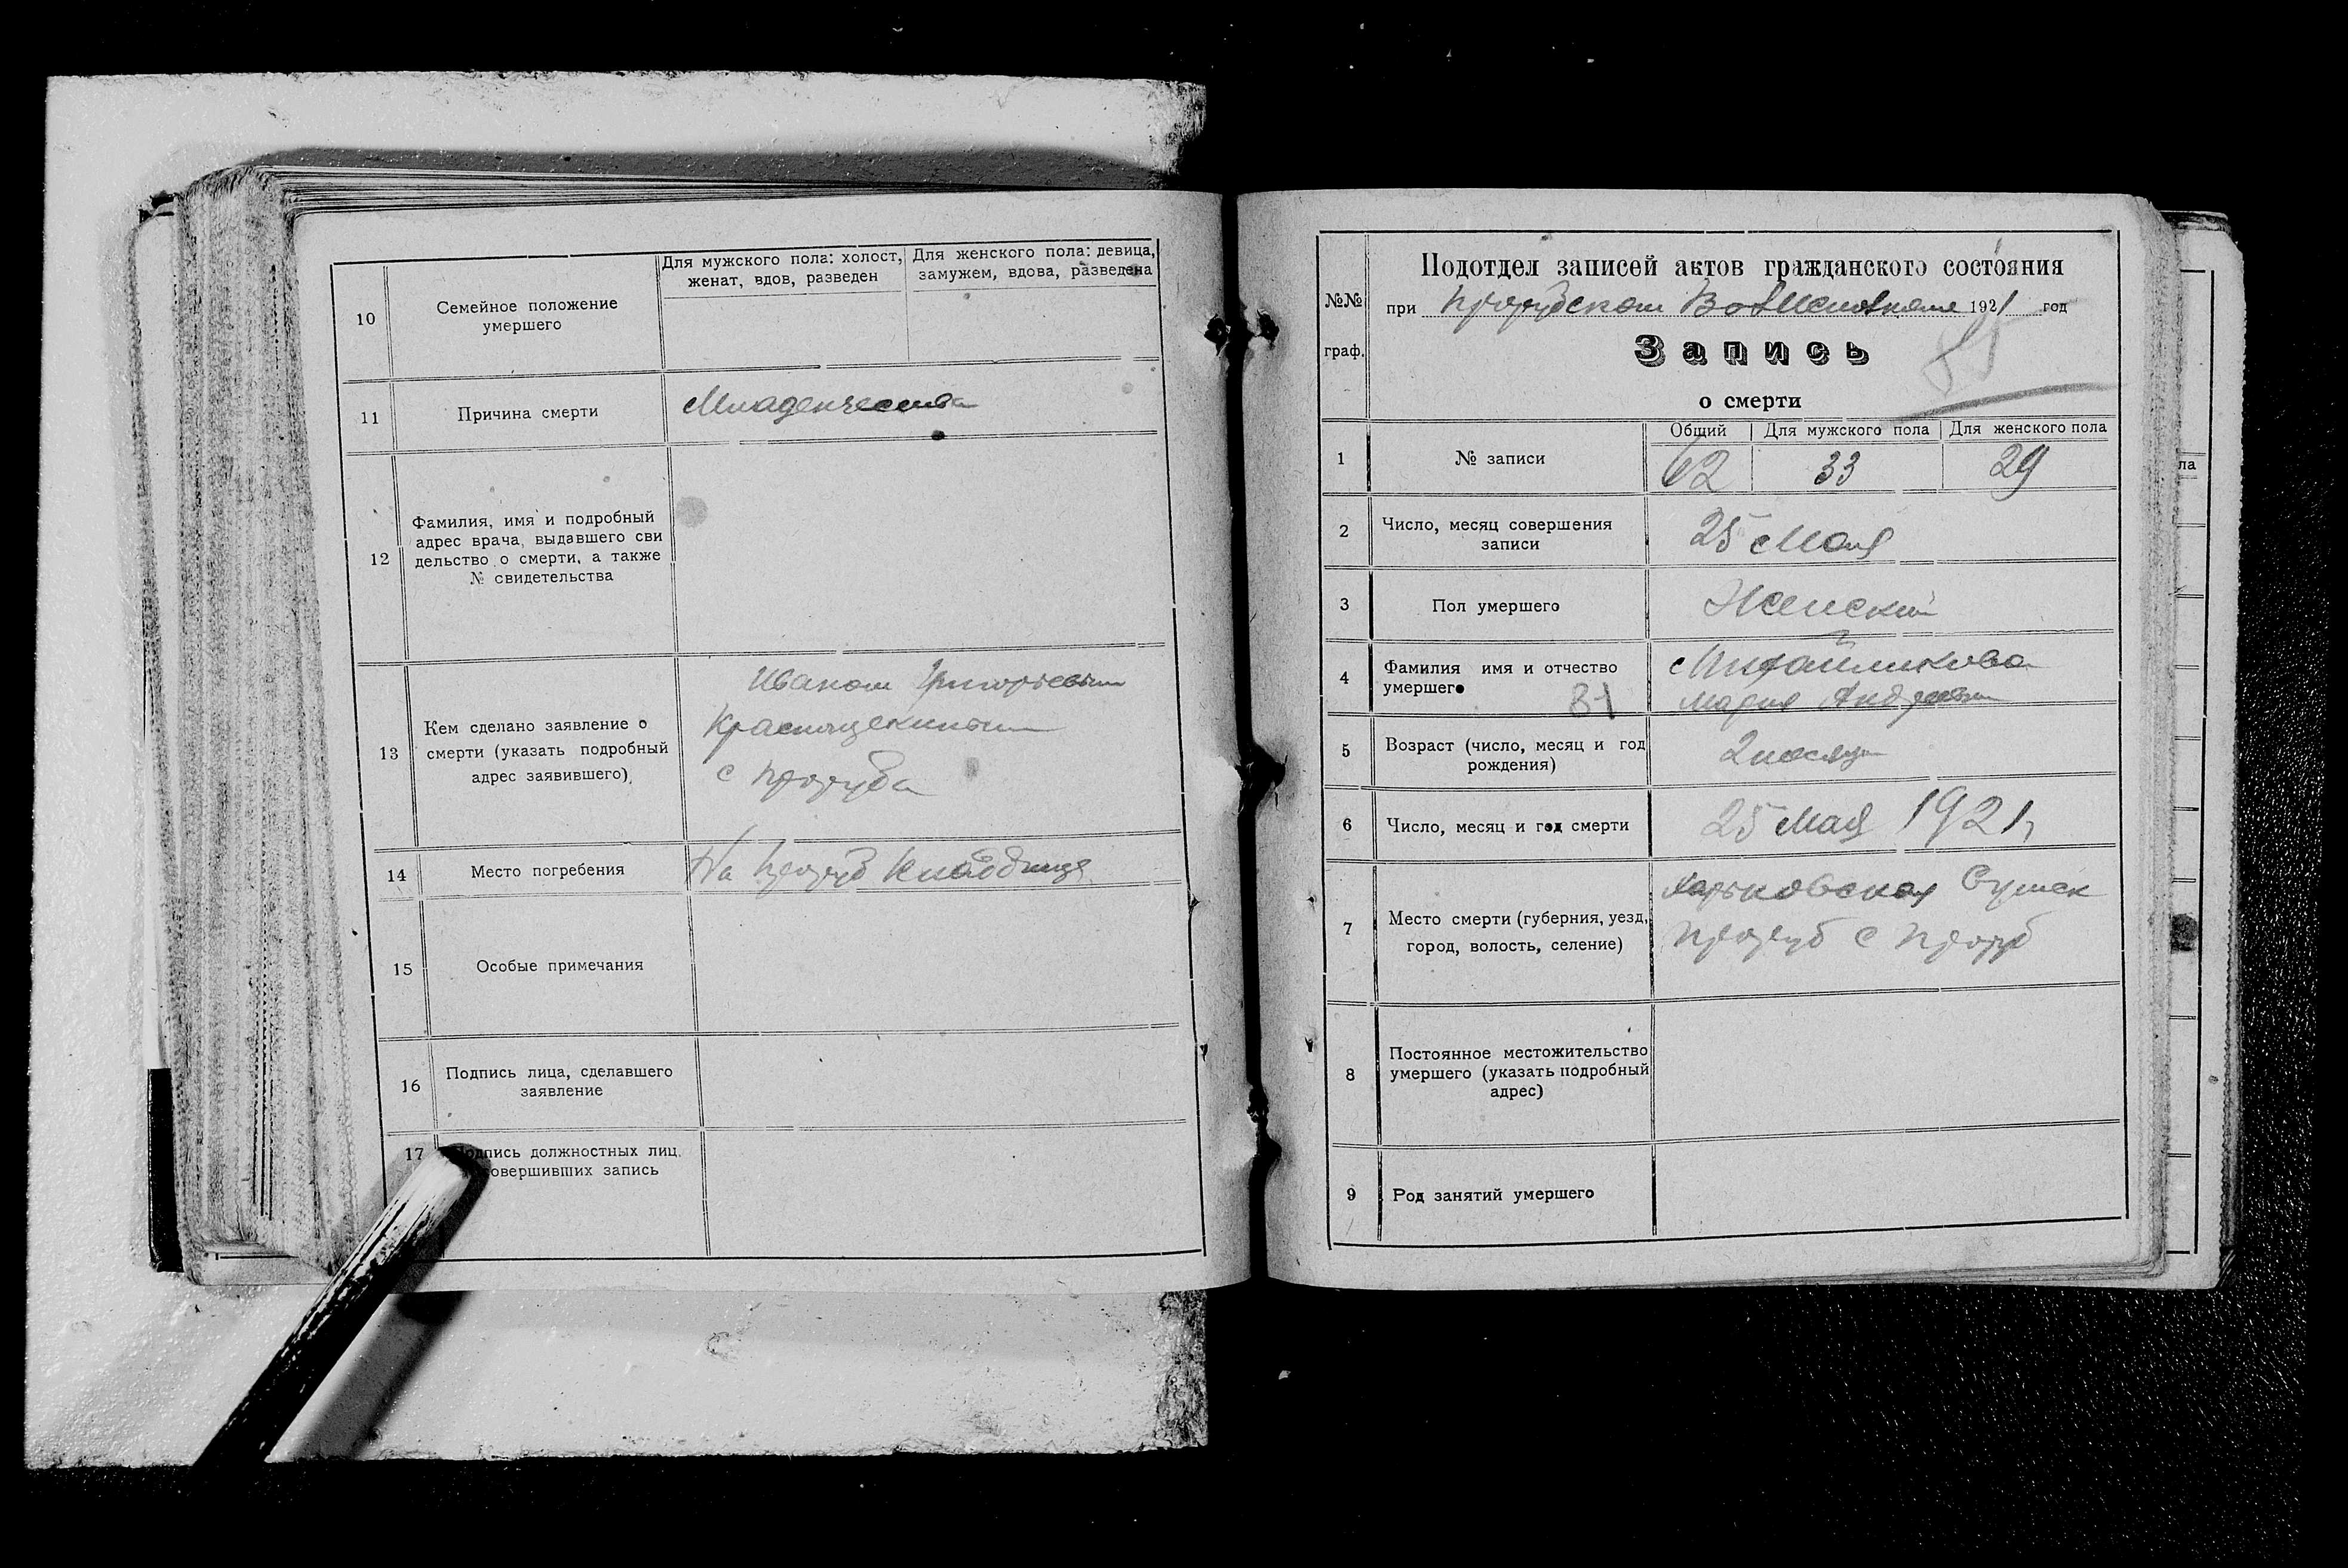 10
Семейное положение
умершего
Для мужского пола: холост,
женат, вдов, разведен
Для женского пола: девица,
замужем, вдова, разведена
11
Причина смерти
Младенчества
12
Фамилия, имя и подробный
адрес врача, выдавшего сви
дельство о смерти, а также
№ свидетельства
13
Кем сделано заявление о
смерти (указать подробный
адрес заявившего)
Иваном Григорьевым
Краснощекиным
с Проруба
14
Место погребения
На Проруб Кладбище
15
Особые примечания
16
Подпись лица, сделавшего
заявление
17
Подпись должностных лиц,
совершивших запись
№№
граф.
Подотдел записей актов гражданского состояния
при Прорубском 1921 год
Запись
о смерти
1
№ записи
Общий
Для мужского пола
Для женского пола
62
33
29
2
Число, месяц совершения
записи
25 Мая
3
Пол умершего
Женский
4
Фамилия имя и отчество
умершего
Михайликова
Мария Андреевн
5
Возраст (число, месяц и год
рождения)
2 месяц
6
Число, месяц и год смерти
25 Мая 1921 г
7
Место смерти (губерния, уезд,
город, волость, селение)
Харьковская Сумск
Проруб с Проруб
8
Постоянное местожительство
умершего (указать подробный
адрес)
9
Род занятий умершего
ла